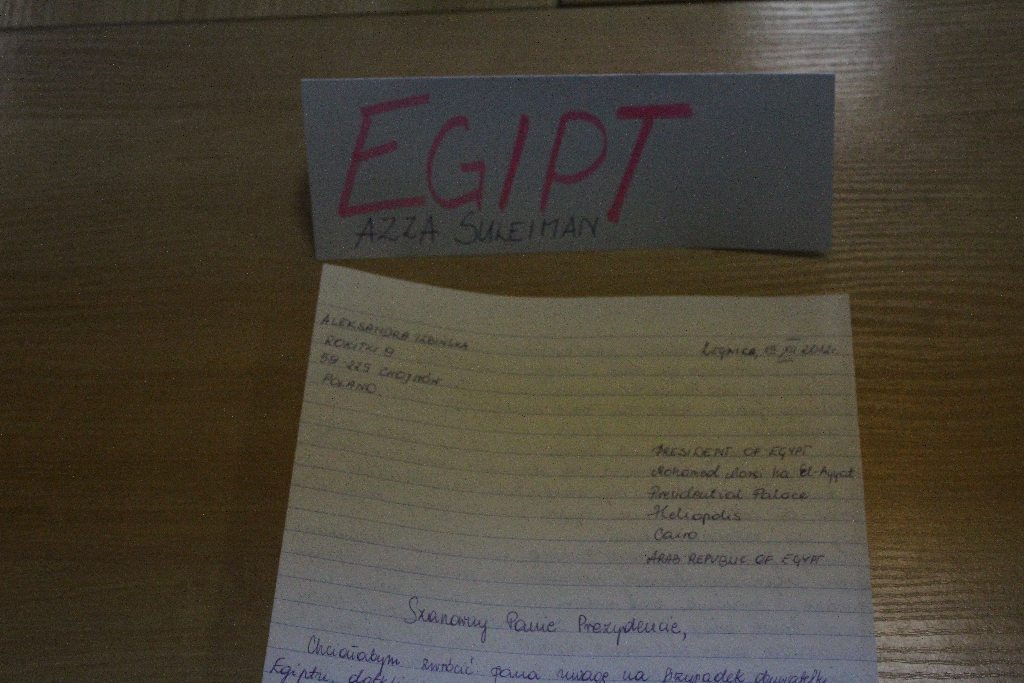 EGIPT
AZZA SULEIMAN
ALEKSANDRA
ROKITKI 9
59-225 CHOJNÓW
POLAND
Legnica, XII 2012r.
PRESIDENT OF EGYPT
Mohamed Morsi El-Ayyat
Presidential Palace
Heliopolis
Cairo
ARAB REPUBLIC OF EGYPT
Szanowny Panie Prezydencie,
Chciałabym zwrócić pana uwagę na przypadek obywatelki
Egiptu,